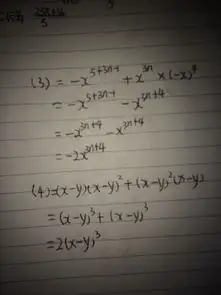 (3) = -x^{5+3n-1} + x^{3n} × (-x)^4
= -x^{5+3n-1} - x^{3n+4}
= -x^{3n+4} - x^{3n+4}
= -2x^{3n+4}
(4) = (x-y)(x-y)^2 + (x-y)^2(x-y)
= (x-y)^3 + (x-y)^3
= 2(x-y)^3